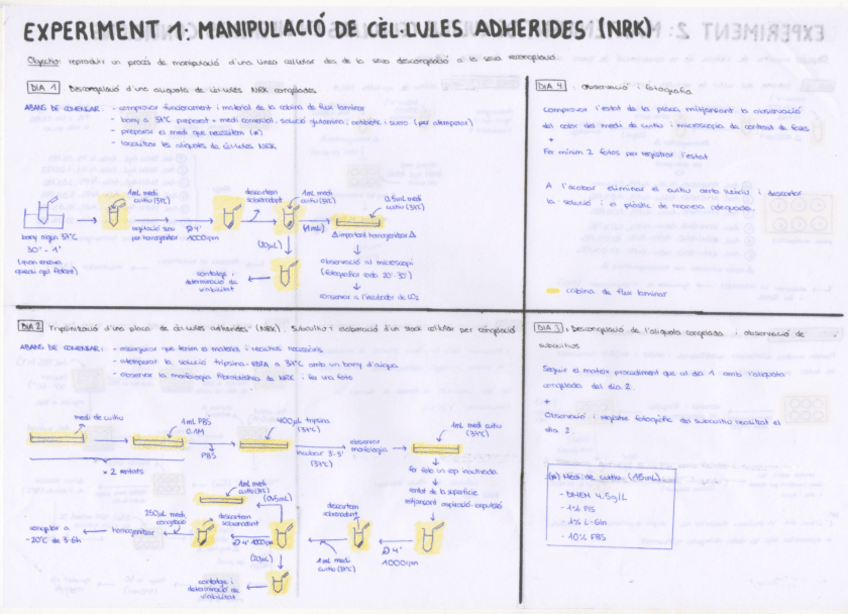 EXPERIMENT 1: MANIPULACIÓ DE CÈL·LULES ADHERIDES (NRK)
Objectiu: reproduir un procés de manipulació d'una línea cel·lular des de la seva descongelació a la seva recongelació.
DIA 1 Descongelació d'una aliquota de cèl·lules NRK congelades
ABANS DE COMENÇAR: - comprovar funcionament i material de la cabina de flux laminar
- bany a 37ºC preparat + medi comercial, solució glutamina, antibiotic i suero (per atemperar)
- preparar el medi que necessitem (*)
- localitzar les aliquotes de cèl·lules NRK
bany aigua 37ºC
30" - 1'
quedi gel flotant)
1mL medi
cultiu (37ºC)
agitació suau
per homogeneitzar
Ω 4'
1000rpm
descartem
sobrenedant
1mL medi
cultiu (37ºC)
(20µL)
(1mL)
0,5mL medi
cultiu (37ºC)
Δ important homogeneitzar Δ
observació al microscopi
(fotografiar cada 20'-30')
conservar a l'incubador de CO2
contatge i
determinació de
viabilitat
DIA 4: Observació i fotografia
Comprovar l'estat de la placa mitjançant la observació
del color del medi de cultiu i microscopia de contrast de fases
+
Fer mínim 2 fotos per registrar l'estat
A l'acabar eliminar el cultiu amb lleixiu i descartar
la solució i el plàstic de manera adequada.
cabina de flux laminar
DIA 2 Tripsinització d'una placa de cèl·lules adherides (NRK). Subcultiu i elaboració d'un stock cel·lular per congelació
ABANS DE COMENÇAR: - assegurar que tenim el material i reactius necessaris
- atemperar la solució tripsina-EDTA a 37ºC amb un bany d'aigua
- observar la morfologia fibroblàstica de NRK i fer una foto
medi de cultiu
1mL PBS
0.1M
PBS
× 2 rentats
400µL tripsina
(37ºC)
incubar 3'-5'
(37ºC)
observar
morfologia
1mL medi cultiu
(37ºC)
fer foto un cop inactivada
rentat de la superfície
mitjançant aspiració-expulsió
Ω 4'
1000rpm
descartem
sobrenedant
1mL medi
cultiu (37ºC)
1mL medi
cultiu (37ºC)
(0,5mL)
Ω 4' 1000rpm
(20µL)
contatge i
determinació de
viabilitat
descartem
sobrenedant
250µL medi
congelació
homogeneitzar
congelar a
-20ºC de 3-6h
DIA 3: Descongelació de l'aliquota congelada i observació de
subcultius
Seguir el mateix procediment que al dia 1 amb l'aliquota
congelada del dia 2.
+
Observació i registre fotogràfic del subcultiu realitzat el
dia 2.
(*) Medi de cultiu (15mL)
- DMEM 4.5g/L
- 1% L-Gln
- 10% FBS